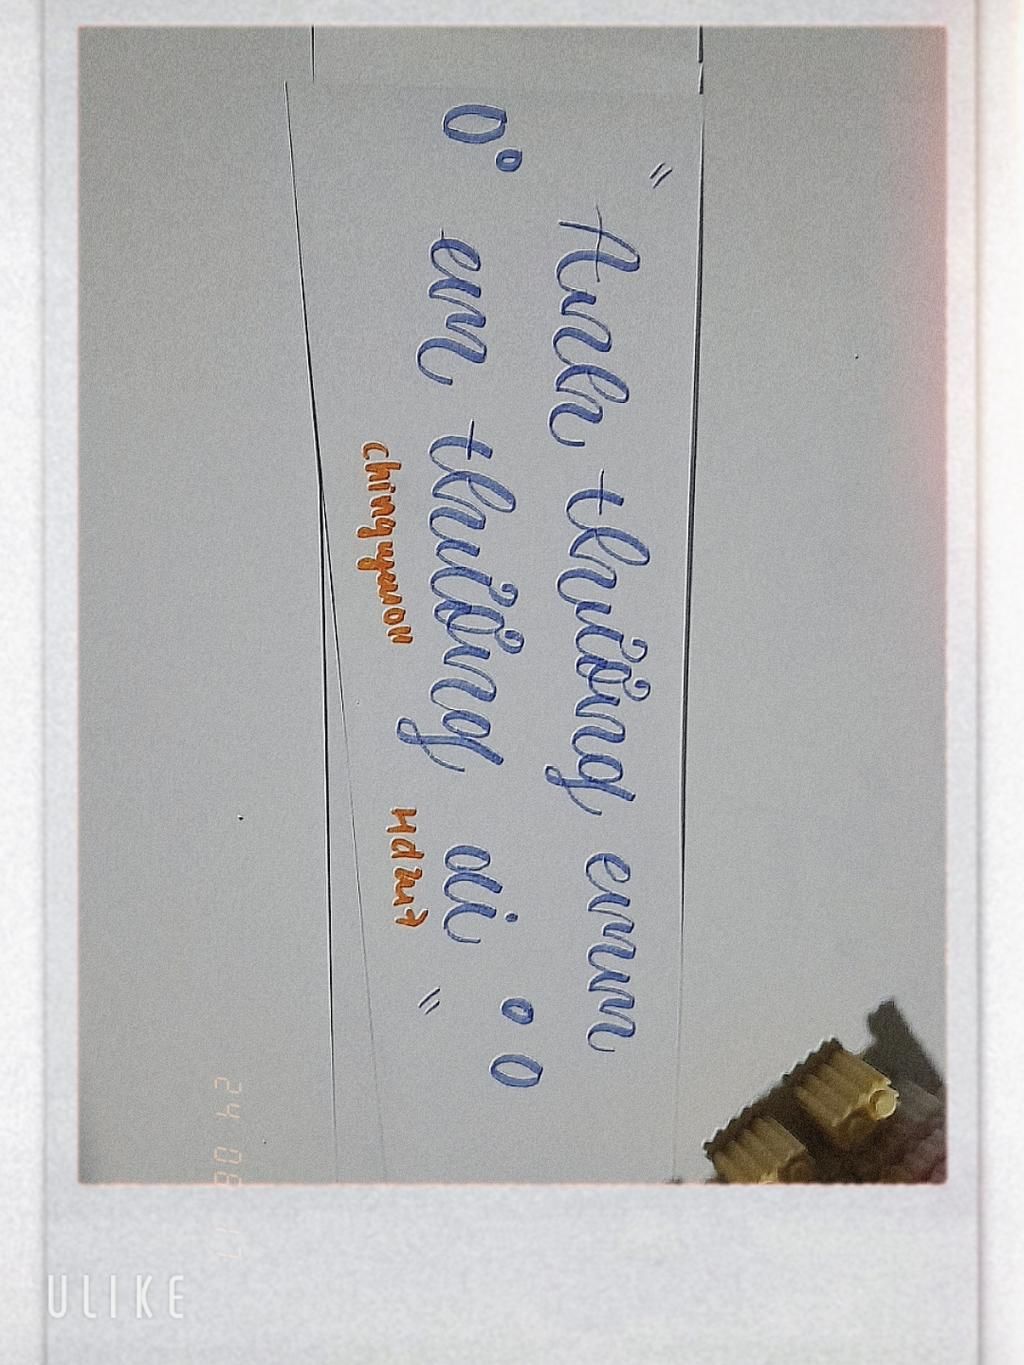 " Anh thương emm
em thương đi "
chinguyenou
24 08 17
ULIKE